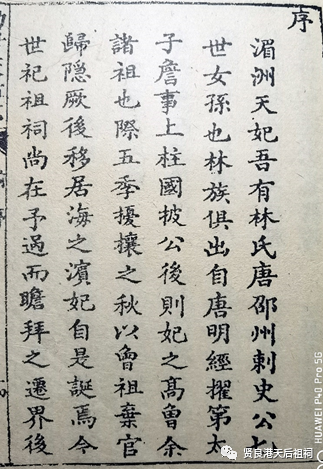 序
湄洲天妃吾有林氏唐邵州刺史公七
世女孫也林族俱出自唐明經擢第太
子詹事上柱國披公後則妃之高曾余
諸祖也際五季擾攘之秋以曾祖棄官
歸隱厥後移居海之濱妃自是誕焉今
世祀祖祠尚在予過而瞻拜之遷界後
HUAWEI P40 Pro 5G
贤良港天后祖祠